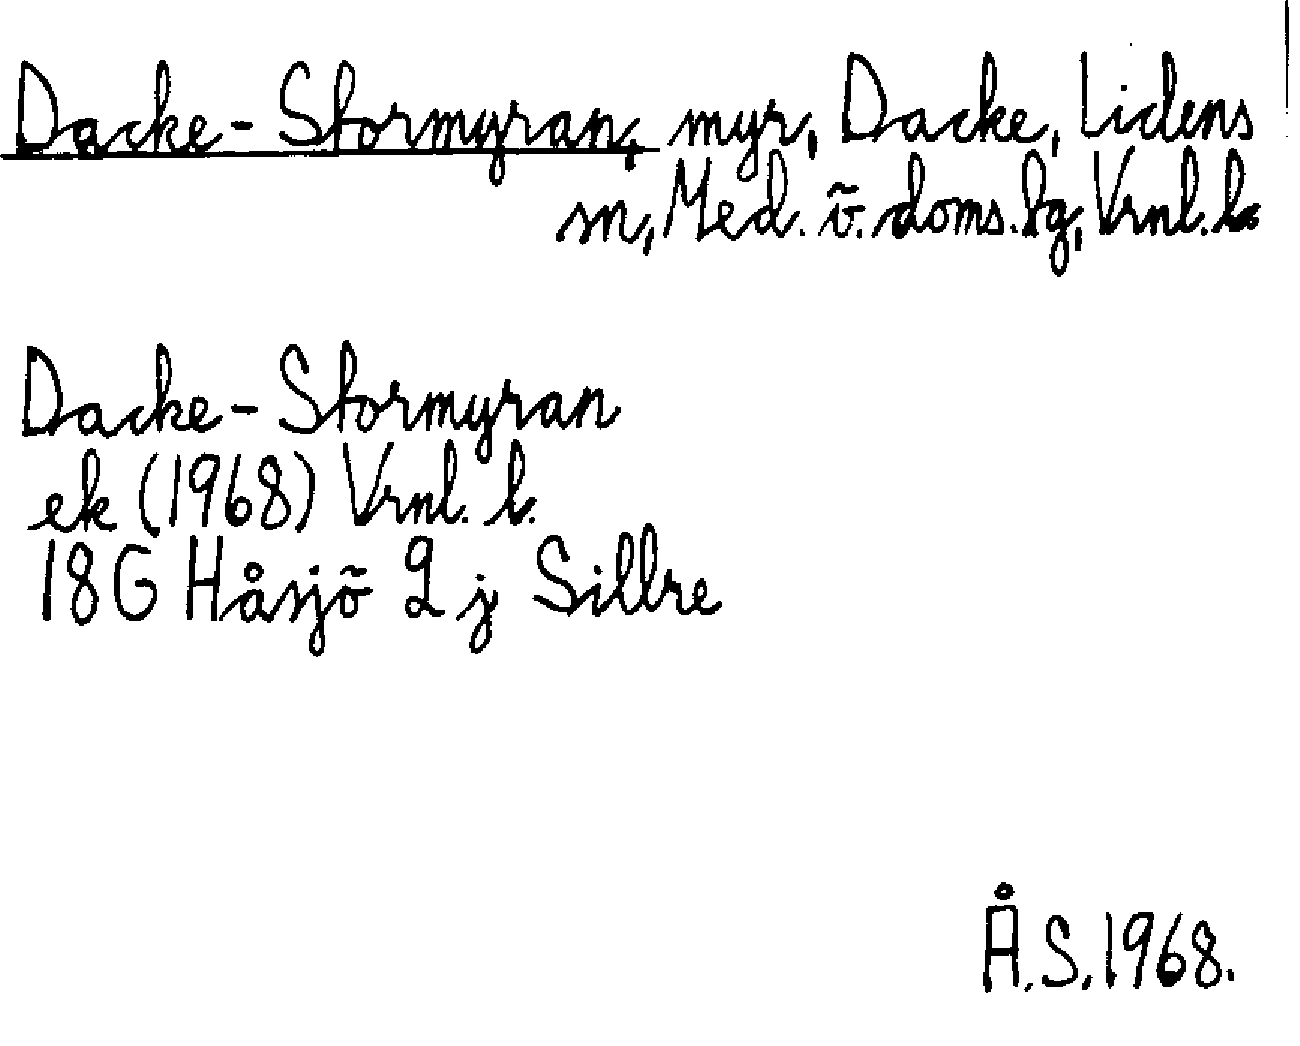 Dacke-Stormyran, myr, Dacke, Lidens
sn, Med. ö. doms.lg, Vrnl. l.
Dacke-Stormyran
ek (1968) Vrnl. l.
18G Håsjö 2j Sillre
Å.S. 1968.